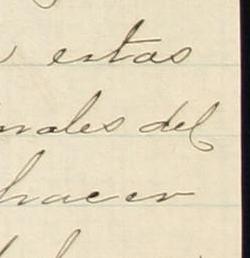 estas
nales del
hacer